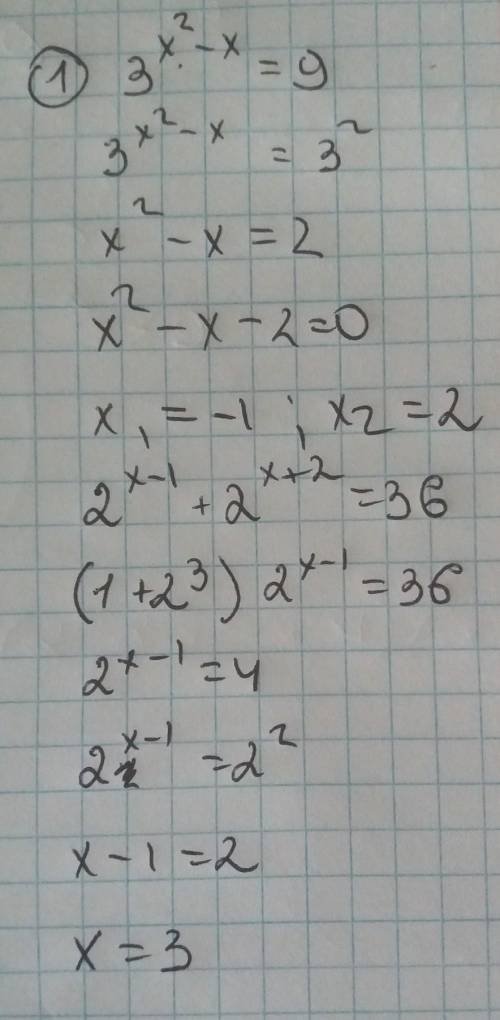 ① 3^(x²-x) = 9
3^(x²-x) = 3²
x² - x = 2
x² - x - 2 = 0
x₁ = -1 ; x₂ = 2
2^(x-1) + 2^(x+2) = 36
(1 + 2³) 2^(x-1) = 36
2^(x-1) = 4
2^(x-1) = 2²
x - 1 = 2
x = 3